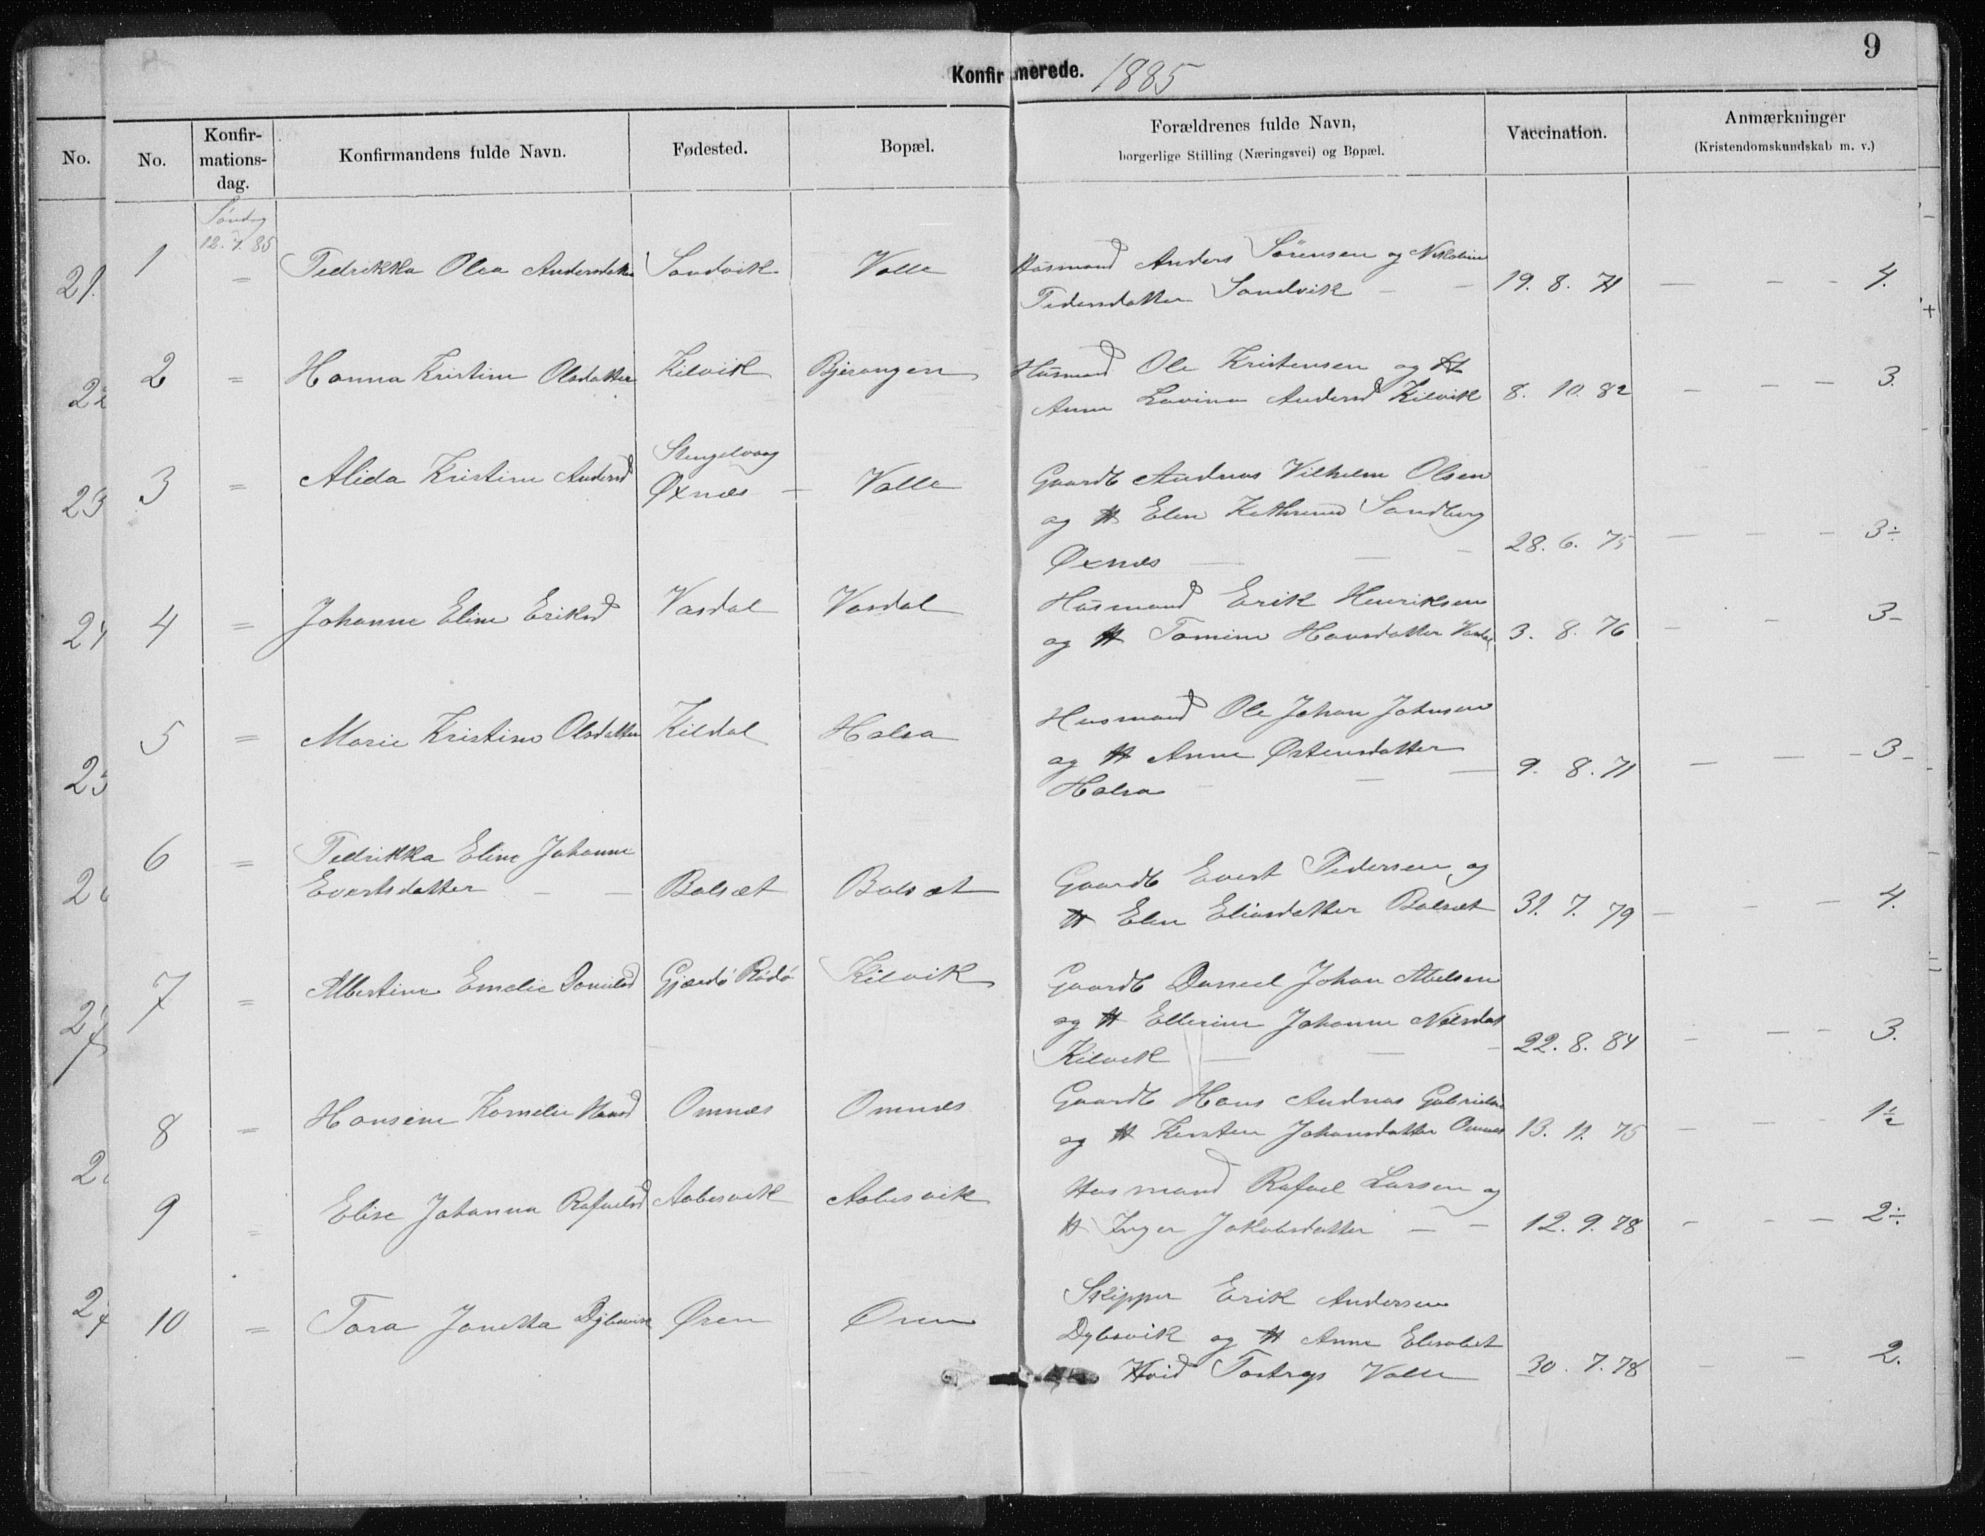 9
Konfirmerede. 1885
No.
No.
Konfir-
mations-
dag.
Konfirmandens fulde Navn.
Fødested.
Bopæl.
Forældrenes fulde Navn,
borgerlige Stilling (Næringsvei) og Bopæl.
Vaccination.
Anmærkninger
(Kristendomskundskab m. v.)
Søndag
12. 7. 85
21. 1 = Pedrikka Olea Andersdatter Sandvik Valle Husmand Anders Sørensen og Nikoline
Pedersdatter Sandvik — — 19. 8. 71 — — — 4.
22 2 = Hanna Kristine Olsdatter Kilvik Bjerangen Husmand Ole Kristensen og H
Anne Lavina Andersd Kilvik 8. 10. 82 — — — 3.
23 3 = Alida Kristine Andersd Stengelvaag
Øxnæs — Valle Gaardb Andreas Vilhelm Olsen
og H Elen Kathrine Sandberg
Øxnæs — — — 28. 6. 75 — — — 3÷
24 4 = Johanne Eline Eriksd Vasdal Vasdal Husmand Erik Henriksen
og H Tomine Hansdatter Vasdal 3. 8. 76 — — 3-
25 5 = Marie Kristine Olsdatter Kildal Halsa Husmand Ole Johan Johnsen
og H Anne Østensdatter
Halsa — — — 9. 8. 71 — — — 3-
6 = Pedrikka Eline Johanne
Evertsdatter — — Balsæt Balsæt Gaardb Evert Pedersen og
H Elen Eliasdatter Balsæt 31. 7. 79 — — — 4.
27 7 = Albertine Emelie Danielsd Gjærdö Rödö Kilvik Gaardb Daniel Johan Abelsen
og H Ellerine Johanne Nilsdat
Kilvik — — — 22. 8. 84 — — — 3.
8 = Hansine Kornelie Hansd Omnæs Omnæs Gaardb Hans Andreas Gabrielsen
og H Kirsten Johansdatter Omnæs 13. 11. 75 — — 1½
9 = Elise Johanna Rafaelsd Aabesvik Aabesvik Husmand Rafael Larsen og
H Inger Jakobsdatter — — 12. 9. 78 — — — 2÷.
10 = Tora Jonetta Dybsvik Øren Øren Skipper Erik Andersen
Dybsvik og H Anne Elisabet
Hvid Valle 30. 7. 78 — — 2.